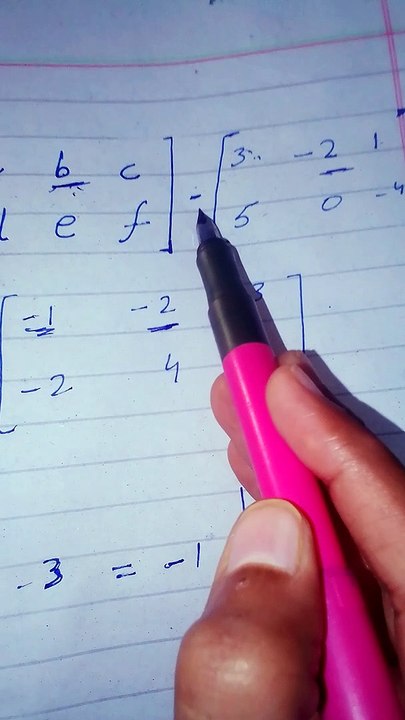 b c ] - [ 3 -2 1
d e f ] [ 5 0 -4
[ -1 -2 3 ]
-2 4
- 3 = -1